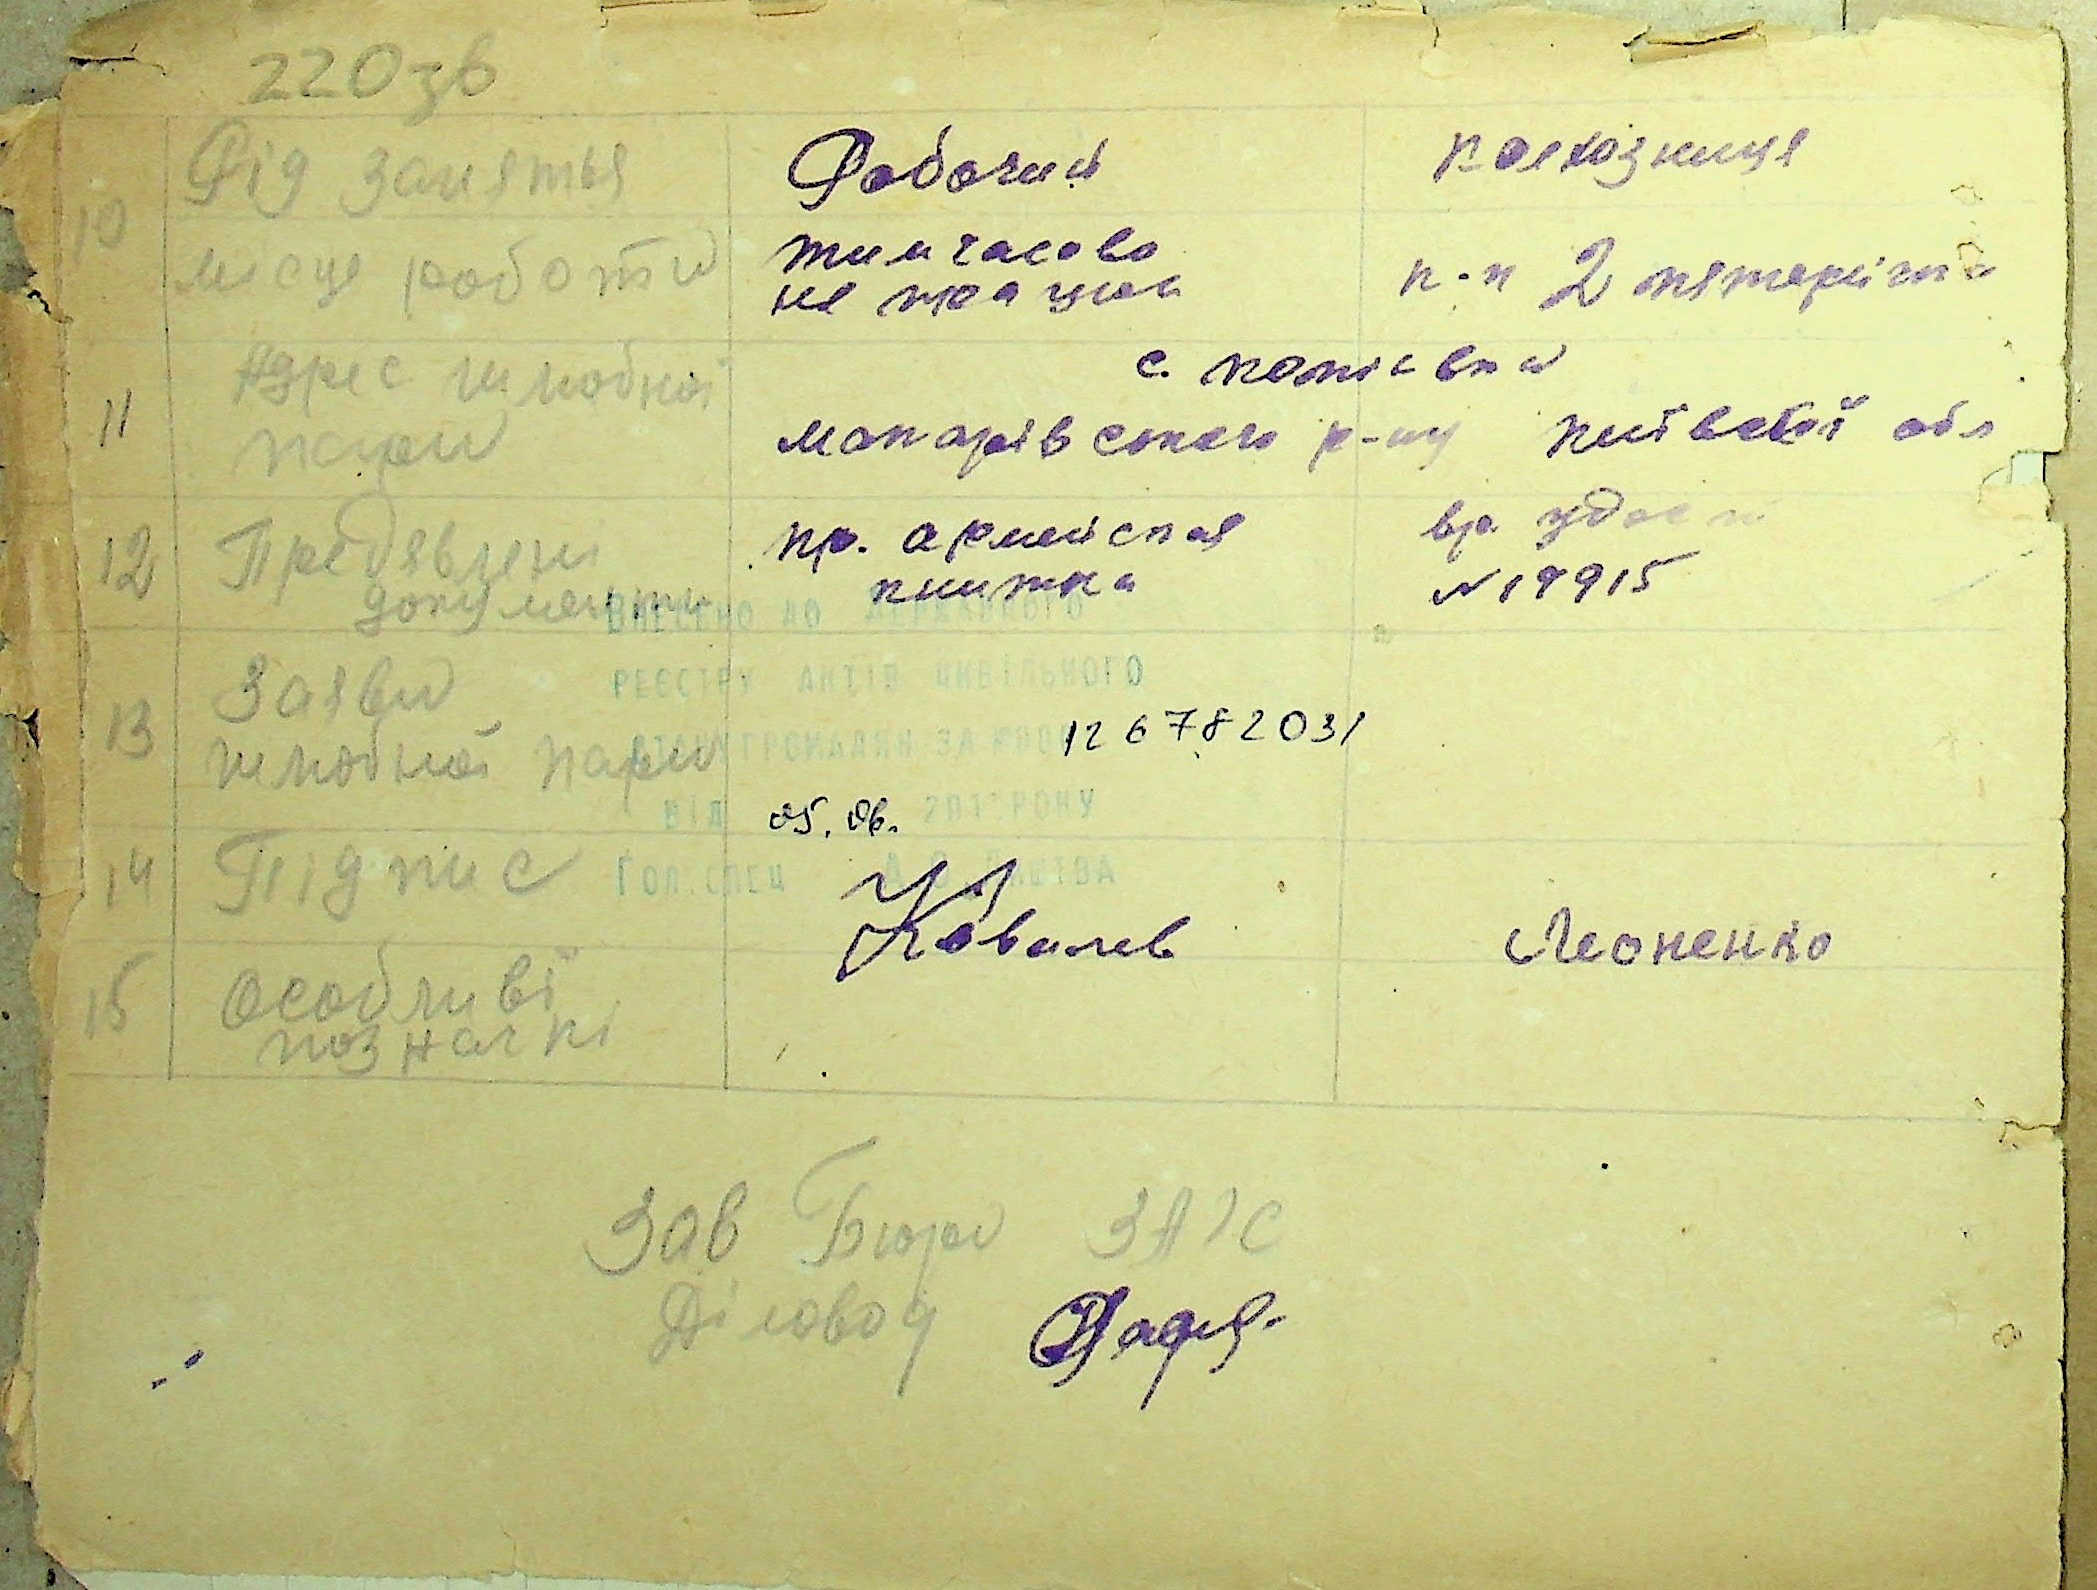 220 зв
10 Рід заняття Робочий колхозниця
місце роботи тимчасово к-п 2 пятирічка
не працює
11 Адрес шлюбної с. Копіівка
пари Макарівського р-ну Київської обл
12 Предявлені кр. армейская вр. удост
документи книжка №19915
ВНЕСЕНО ДО ДЕРЖАВНОГО
13 Заяви РЕЄСТРУ АКТІВ ЦИВІЛЬНОГО
шлюбної пари СТАНУ ГРОМАДЯН ЗА 126782031
ВІД 05.06. РОКУ
14 Підпис Гол.спец
Ковалев Леоненко
15 Особливі
позначкі
Зав Бюро ЗАГС
Діловод